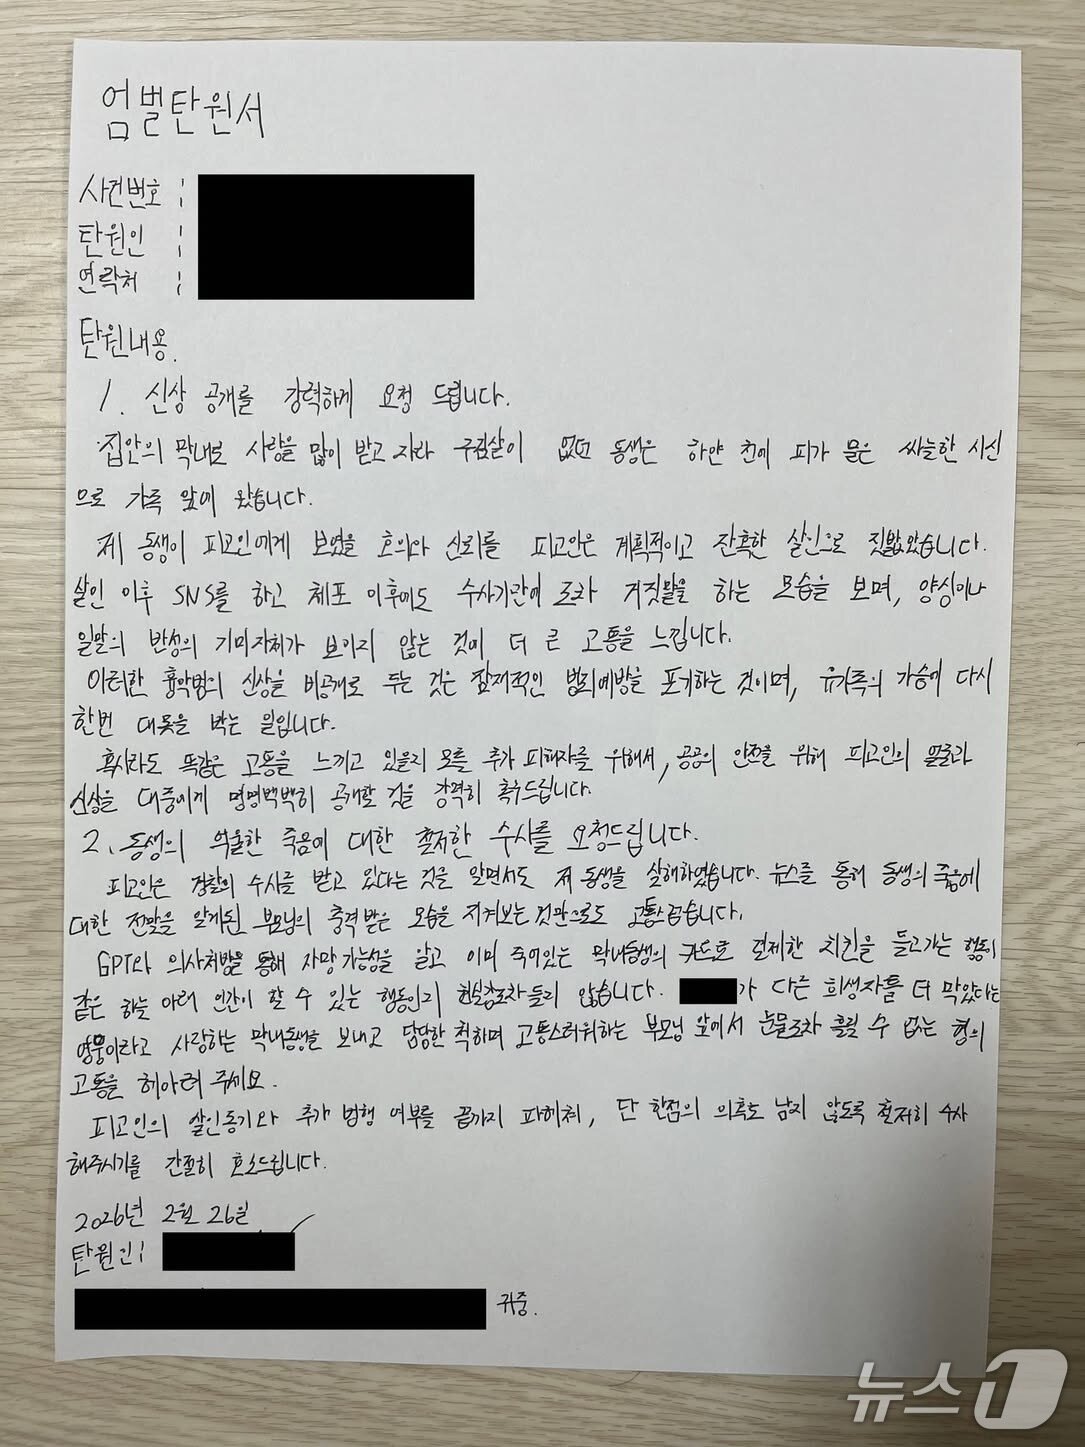 엄벌탄원서
사건번호 :
탄원인 :
연락처 :
탄원내용.
1. 신상 공개를 강력하게 요청 드립니다.
집안의 막내로 사랑을 많이 받고 자라 구김살이 없던 동생은 하얀 천에 피가 물은 싸늘한 시신
으로 가족 앞에 왔습니다.
제 동생이 피고인에게 보였을 호의와 신뢰를 피고인은 계획적이고 잔혹한 살인으로 짓밟았습니다.
살인 이후 SNS를 하고 체포 이후에도 수사기관에 조차 거짓말을 하는 모습을 보며, 양심이나
일말의 반성의 기미자체가 보이지 않는 것에 더 큰 고통을 느낍니다.
이러한 흉악범의 신상을 비공개로 두는 것은 잠재적인 범죄예방을 포기하는 것이며, 유가족의 가슴에 다시
한번 대못을 박는 일입니다.
혹시라도 똑같은 고통을 느끼고 있을지 모를 추가 피해자를 위해서, 공공의 안전을 위해 피고인의 얼굴과
신상을 대중에게 명명백백히 공개할 것을 강력히 촉구드립니다.
2. 동생의 억울한 죽음에 대한 철저한 수사를 요청드립니다.
피고인은 경찰의 수사를 받고 있다는 것을 알면서도 제 동생을 살해하였습니다. 뉴스를 통해 동생의 죽음에
대한 전말을 알게된 부모님의 충격받은 모습을 지켜보는것만으로도 고통스럽습니다.
GPT와 의사처방을 통해 사망가능성을 알고 이미 죽어있는 막내동생의 카드로 결제한 치킨을 들고가는 행동이
같은 하늘 아래 인간이 할 수 있는 행동인지 현실감조차들지 않습니다. 가 다른 희생자를 더 막았다는
영웅이라고 사랑하는 막내동생을 보내고 담담한 척하며 고통스러워하는 부모님 앞에서 눈물조차 흘릴 수 없는 형의
고통을 헤아려 주세요.
피고인의 살인동기와 추가 범행 여부를 끝까지 파헤쳐, 단 한점의 의혹도 남지 않도록 철저히 수사
해주시기를 간절히 호소드립니다.
2026년 2월 26일
탄원인:
귀중.
뉴스1